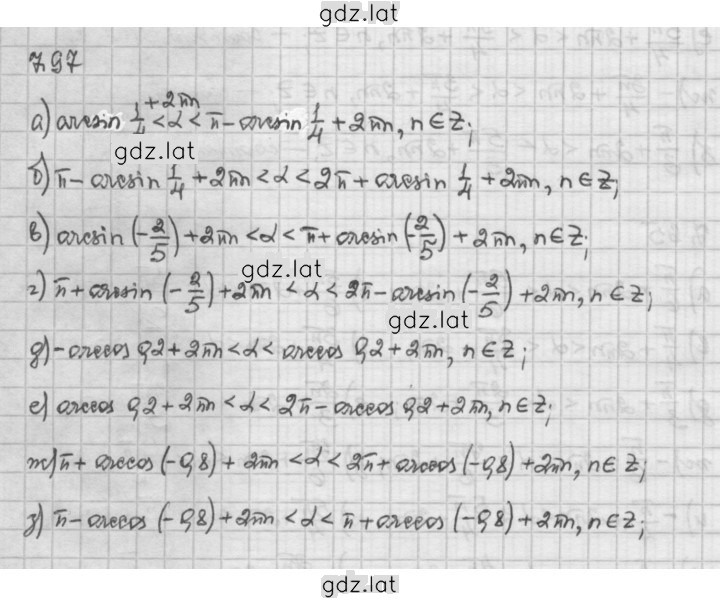 gdz.lat
7.97
а) arcsin 1/4 +2πn < α < π - arcsin 1/4 + 2πn, n ∈ Z;
gdz.lat
б) π - arcsin 1/4 + 2πn < α < 2π + arcsin 1/4 + 2πn, n ∈ Z;
в) arcsin (-2/5) + 2πn < α < π + arcsin (-2/5) + 2πn, n ∈ Z;
gdz.lat
г) π + arcsin (-2/5) + 2πn < α < 2π - arcsin (-2/5) + 2πn, n ∈ Z;
gdz.lat
д) - arccos 0,2 + 2πn < α < arccos 0,2 + 2πn, n ∈ Z;
е) arccos 0,2 + 2πn < α < 2π - arccos 0,2 + 2πn, n ∈ Z;
ж) π + arccos (-0,8) + 2πn < α < 2π + arccos (-0,8) + 2πn, n ∈ Z;
з) π - arccos (-0,8) + 2πn < α < π + arccos (-0,8) + 2πn, n ∈ Z;
gdz.lat